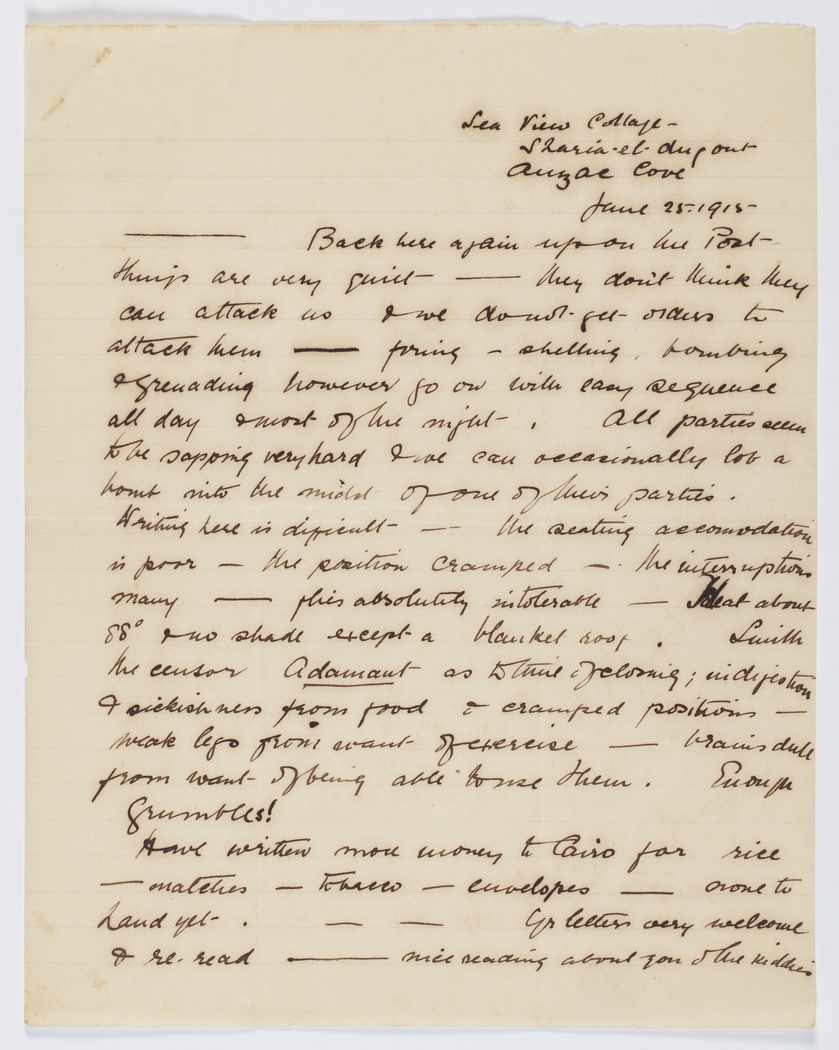 Sea View Cottage -
Sharia-el-dugout
Anzac Cove
June 25. 1915
——— Back here again up on the Post -
things are very quiet —— they don't think they
can attack us & we do not get orders to
attack them —— firing - shelling, bombing
& grenading however go on with easy sequence
all day & most of the night. All parties seem
to be sapping very hard & we can occasionally lob a
bomb into the midst of one of their parties.
Writing here is difficult — the seating accomodation
is poor - the position cramped - the interruptions
many —— flies absolutely intolerable — Heat about
88° & no shade except a blanket roof. Smith
the censor Adamant as to time of closing; indigestion
& sickishness from food & cramped positions —
weak legs from want of exercise — brains dull
from want of being able to use them. Enough
Grumbles!
Have written more money to Cairo for rice
— matches — tobacco — envelopes —— none to
hand yet. — — Yr letters very welcome
& re-read —— nice reading about you & the kiddies